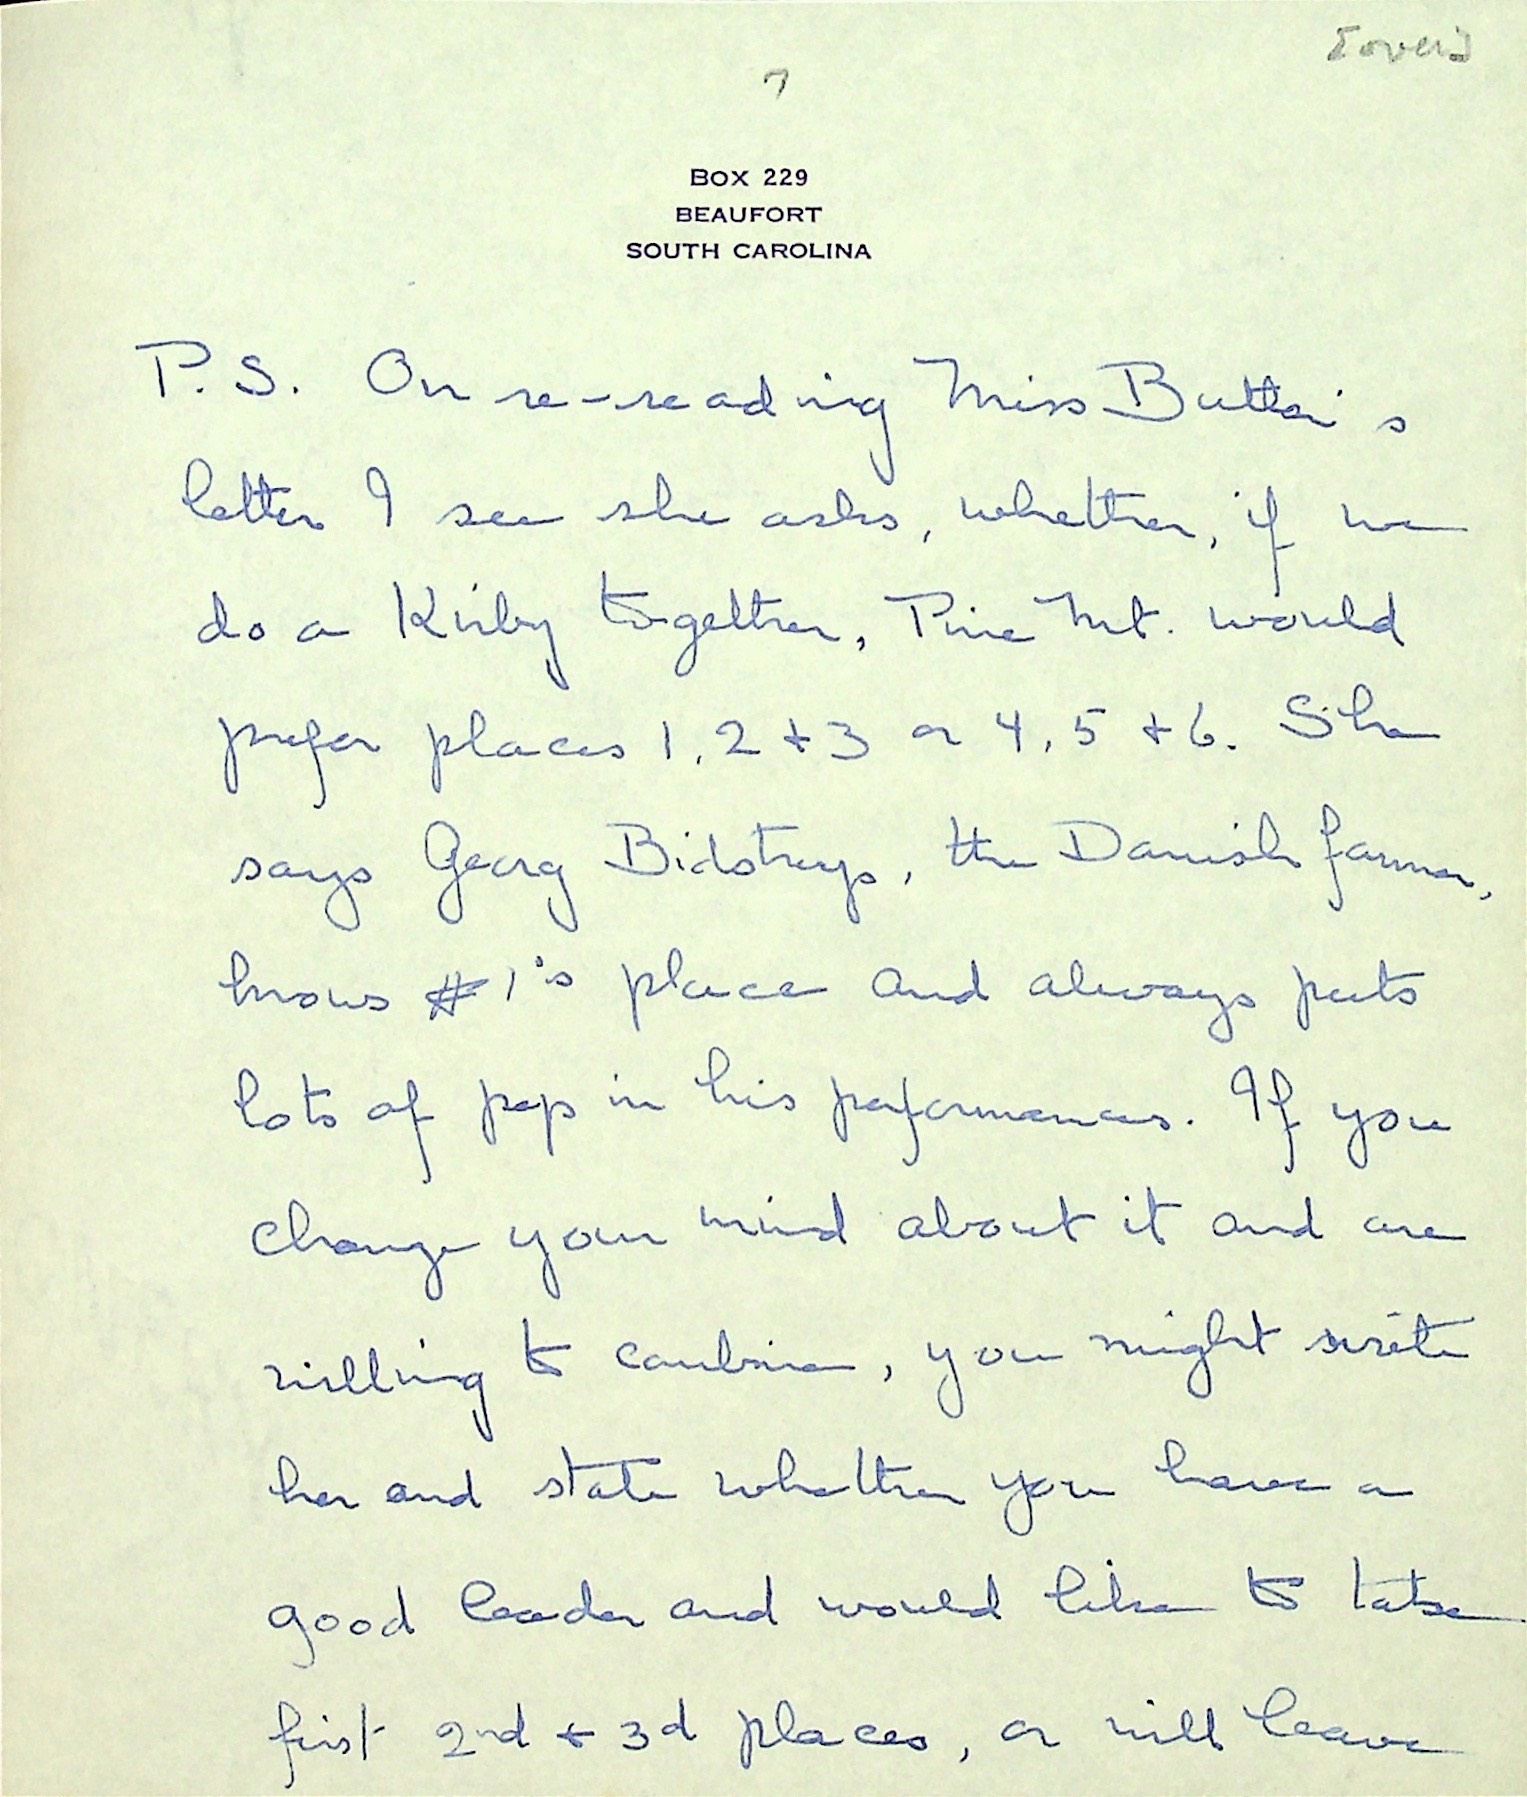 [over]
7
BOX 229
BEAUFORT
SOUTH CAROLINA
P.S. On re-reading Miss Butler's
letter I see she asks, whether, if we
do a Kirby together, Pine Mt. would
prefer places 1, 2 + 3 or 4, 5 + 6. She
says Georg Bidstrup, the Danish farmer,
knows #1's place and always puts
lots of pep in his performances. If you
change your mind about it and are
willing to combine, you might write
her and state whether you have a
good leader and would like to take
first 2nd + 3d places, or will leave